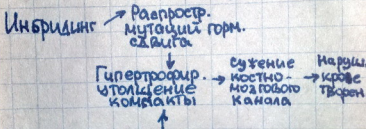 Инбридинг
Распростр.
мутаций горм.
сдвига
Гипертрофир.
утолщение
компакты
сужение
костно-
мозгового
канала
Наруш.
крове
творен